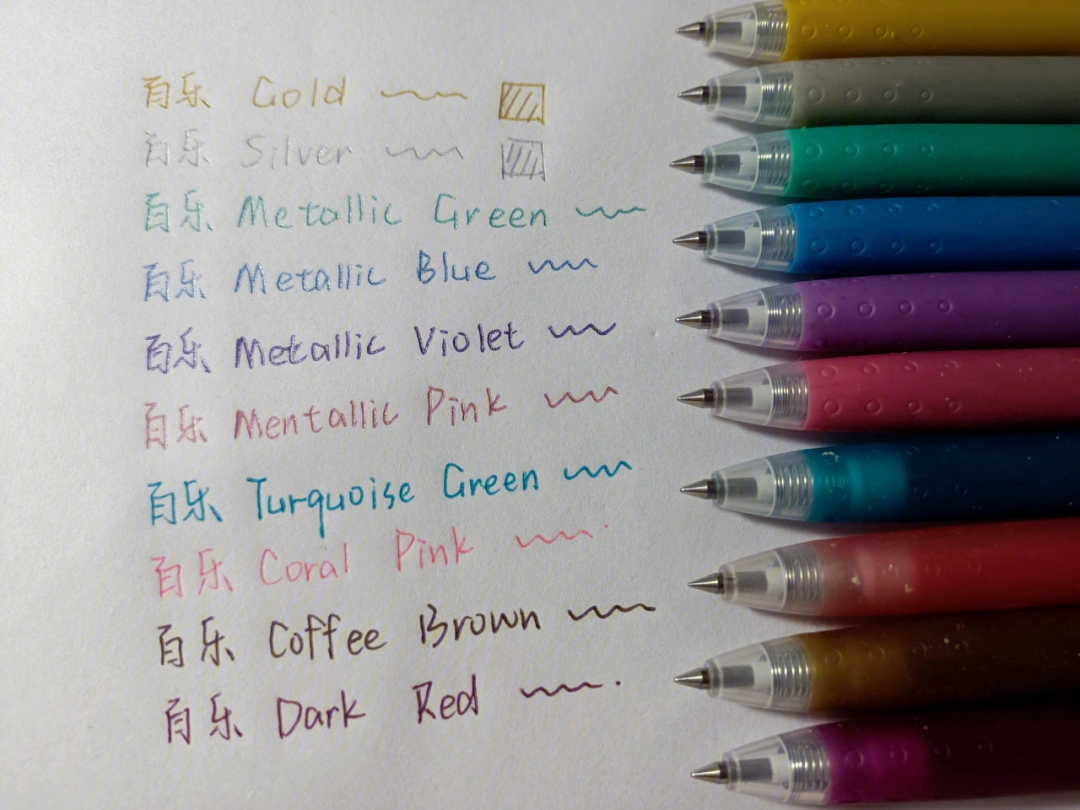 百乐 Gold
百乐 Silver
百乐 Metallic Green
百乐 Metallic Blue
百乐 Metallic Violet
百乐 Mentallic Pink
百乐 Turquoise Green
百乐 Coral Pink
百乐 Coffee Brown
百乐 Dark Red